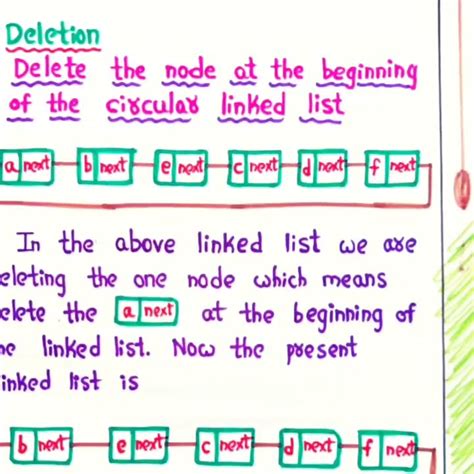 Deletion
Delete the node at the beginning
of the circular linked list
a next b next e next c next d next f next
In the above linked list we are
eleting the one node which means
elete the a next at the beginning of
he linked list. Now the present
inked list is
b next e next c next d next f next